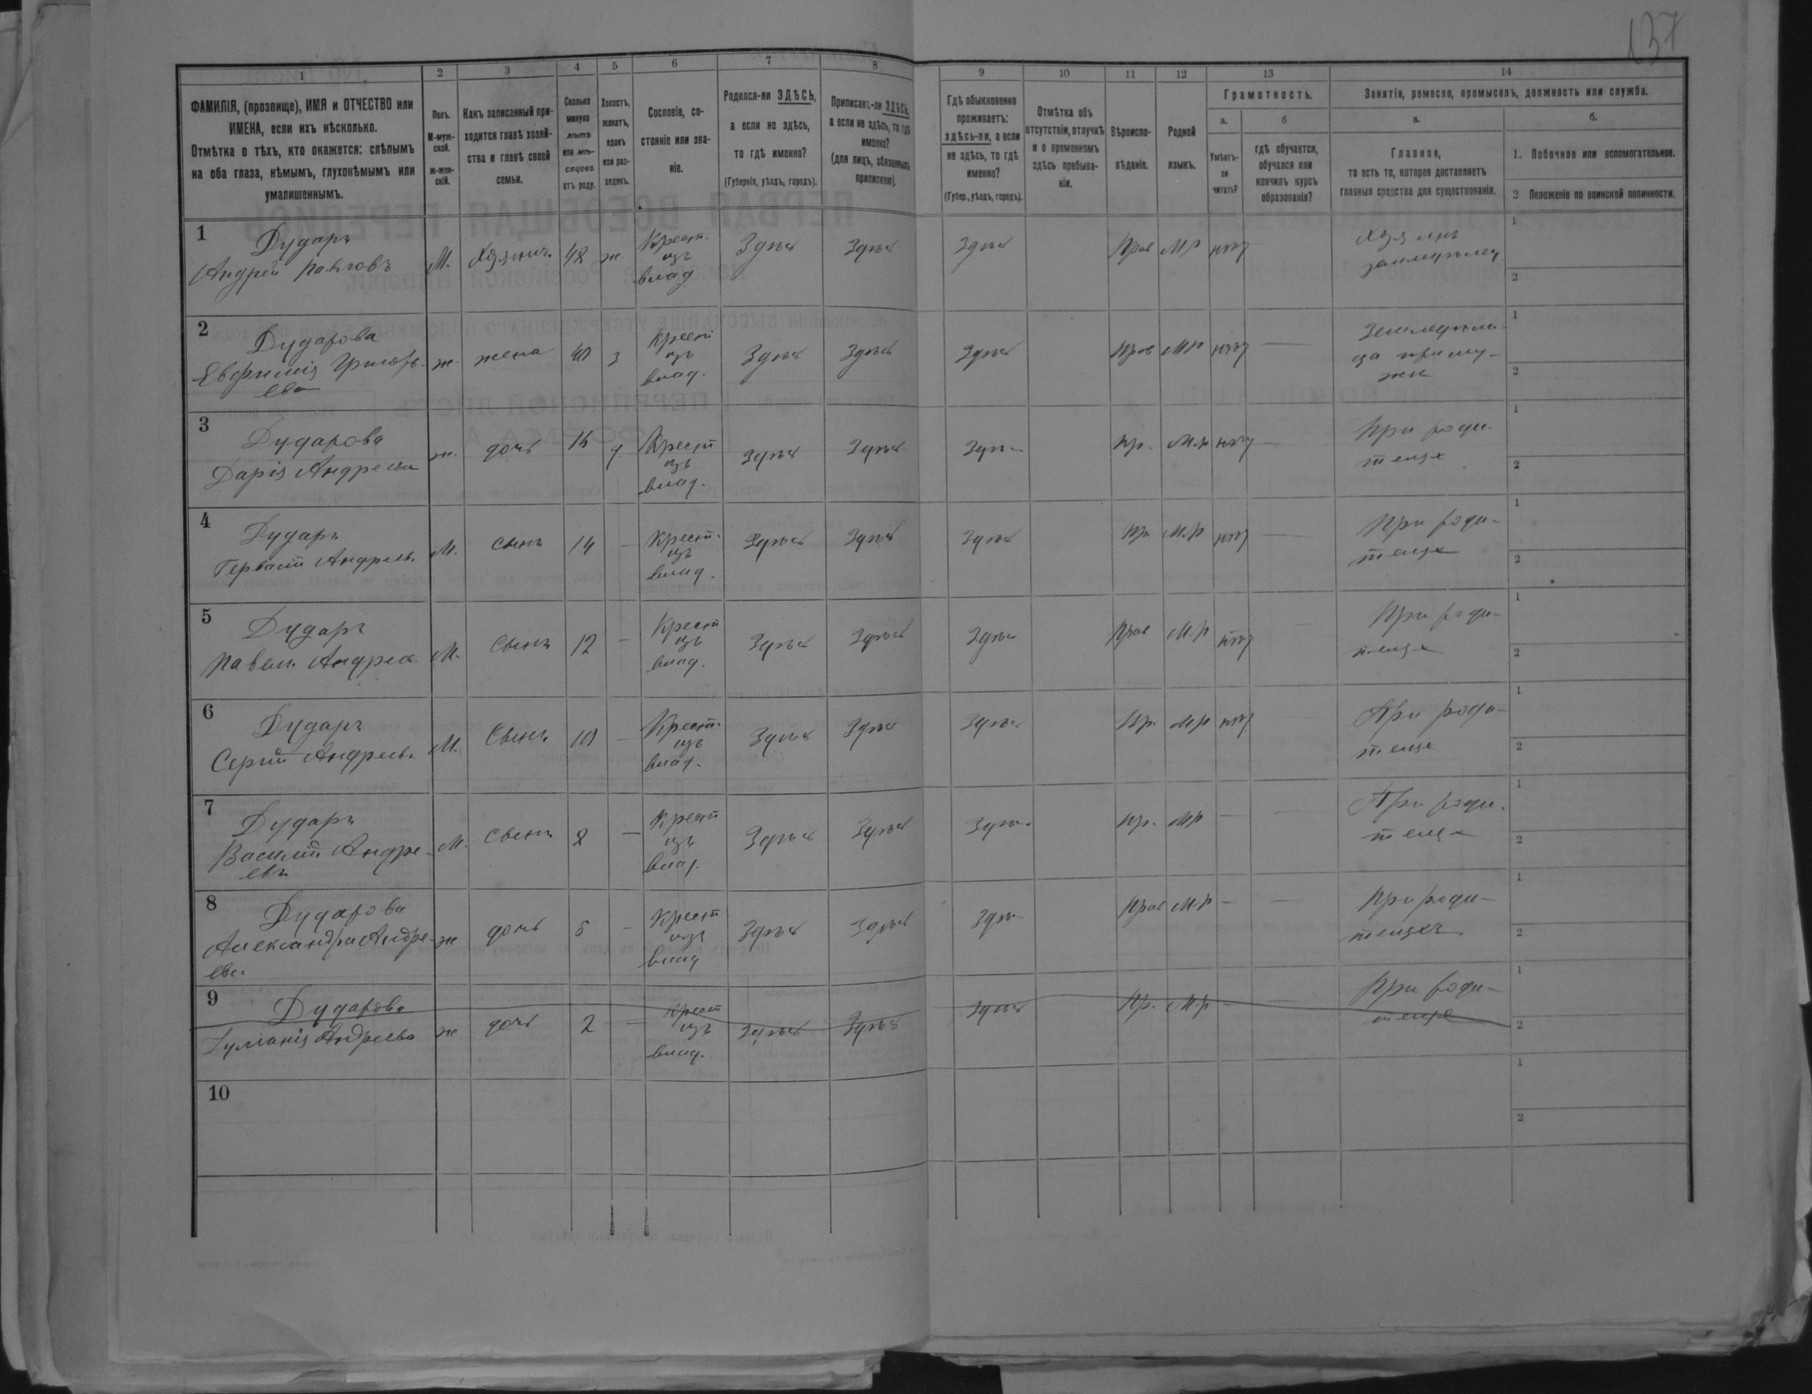 137
1 2 3 4 5 6 7 8 9 10 11 12 13 14
ФАМИЛІЯ, (прозвище), ИМЯ и ОТЧЕСТВО или
ИМЕНА, если ихъ нѣсколько.
Отмѣтка о тѣхъ, кто окажется: слѣпымъ
на оба глаза, нѣмымъ, глухонѣмымъ или
умалишеннымъ.
Полъ.
М-муж-
ской.
ж-жен-
скій.
Какъ записанный при-
ходится главѣ хозяй-
ства и главѣ своей
семьи.
Сколько
минуло
лѣтъ
или мѣ-
сяцевъ
отъ роду.
Холостъ,
женатъ,
вдовъ
или раз-
веденъ.
Сословіе, со-
стояніе или зва-
ніе.
Родился-ли ЗДѢСЬ,
а если не здѣсь,
то гдѣ именно?
(Губернія, уѣздъ, городъ).
Приписанъ-ли ЗДѢСЬ,
а если не здѣсь, то гдѣ
именно?
(для лицъ, обязанныхъ
припискою).
Гдѣ обыкновенно
проживаетъ:
здѣсь-ли, а если
не здѣсь, то гдѣ
именно?
(Губер., уѣздъ, городъ).
Отмѣтка объ
отсутствіи, отлучкѣ
и о временномъ
здѣсь пребыва-
ніи.
Вѣроиспо-
вѣданіе.
Родной
языкъ.
Грамотность.
а.
Умѣетъ-
ли
читать?
б
гдѣ обучается,
обучался или
кончилъ курсъ
образованія?
Занятіе, ремесло, промыселъ, должность или служба.
а.
Главное,
то есть то, которое доставляетъ
главныя средства для существованія.
б.
1. Побочное или вспомогательное.
2 Положеніе по воинской повинности.
1 Дударъ
Андрей Павловъ М. Хозяинъ 48 ж. Крест.
изъ
влад Здѣсь Здѣсь Здѣсь Прав М.р нѣтъ — Хозяинъ
земледѣлец
1
2
2 Дударова
Евфимія Григорь-
ева ж жена 40 з Крест
изъ
влад. Здѣсь Здѣсь Здѣсь Прав М.р нѣтъ —
1
2
3 Дударова
Дарія Андреева ж. дочь 16 д Крест
изъ
влад. Здѣсь Здѣсь Здѣсь Пр. М.р нѣтъ — При роди-
телях
1
2
4 Дударъ
Гервасій Андреев. М. сынъ 14 — Крест.
изъ
влад. Здѣсь Здѣсь Здѣсь Пр М.р нѣтъ — При роди-
телях
1
2
5 Дударъ
Павелъ Андреев. М. Сынъ 12 — Крест
изъ
влад. Здѣсь Здѣсь Здѣсь Прав М.р нѣтъ — При роди-
телях
1
2
6 Дударъ
Сергій Андреев. М. Сынъ 10 — Крест.
изъ
влад. Здѣсь Здѣсь Здѣсь Пр. М.р нѣтъ При роди-
телях
1
2
7 Дударъ
Василій Андре-
евъ М. Сынъ 8 — Крест
изъ
влад. Здѣсь Здѣсь Здѣсь Пр. М.р — — При роди-
телях
1
2
8 Дударова
Александра Андре-
ева ж дочь 5 — Крест
изъ
влад Здѣсь Здѣсь Здѣсь Прав М.р — — При роди-
телях
1
2
9 Дударова
Андреева ж дочь 2 — Крест
изъ
влад. Здѣсь Здѣсь Здѣсь Пр. М.р — При роди-
телях
1
2
10
1
2